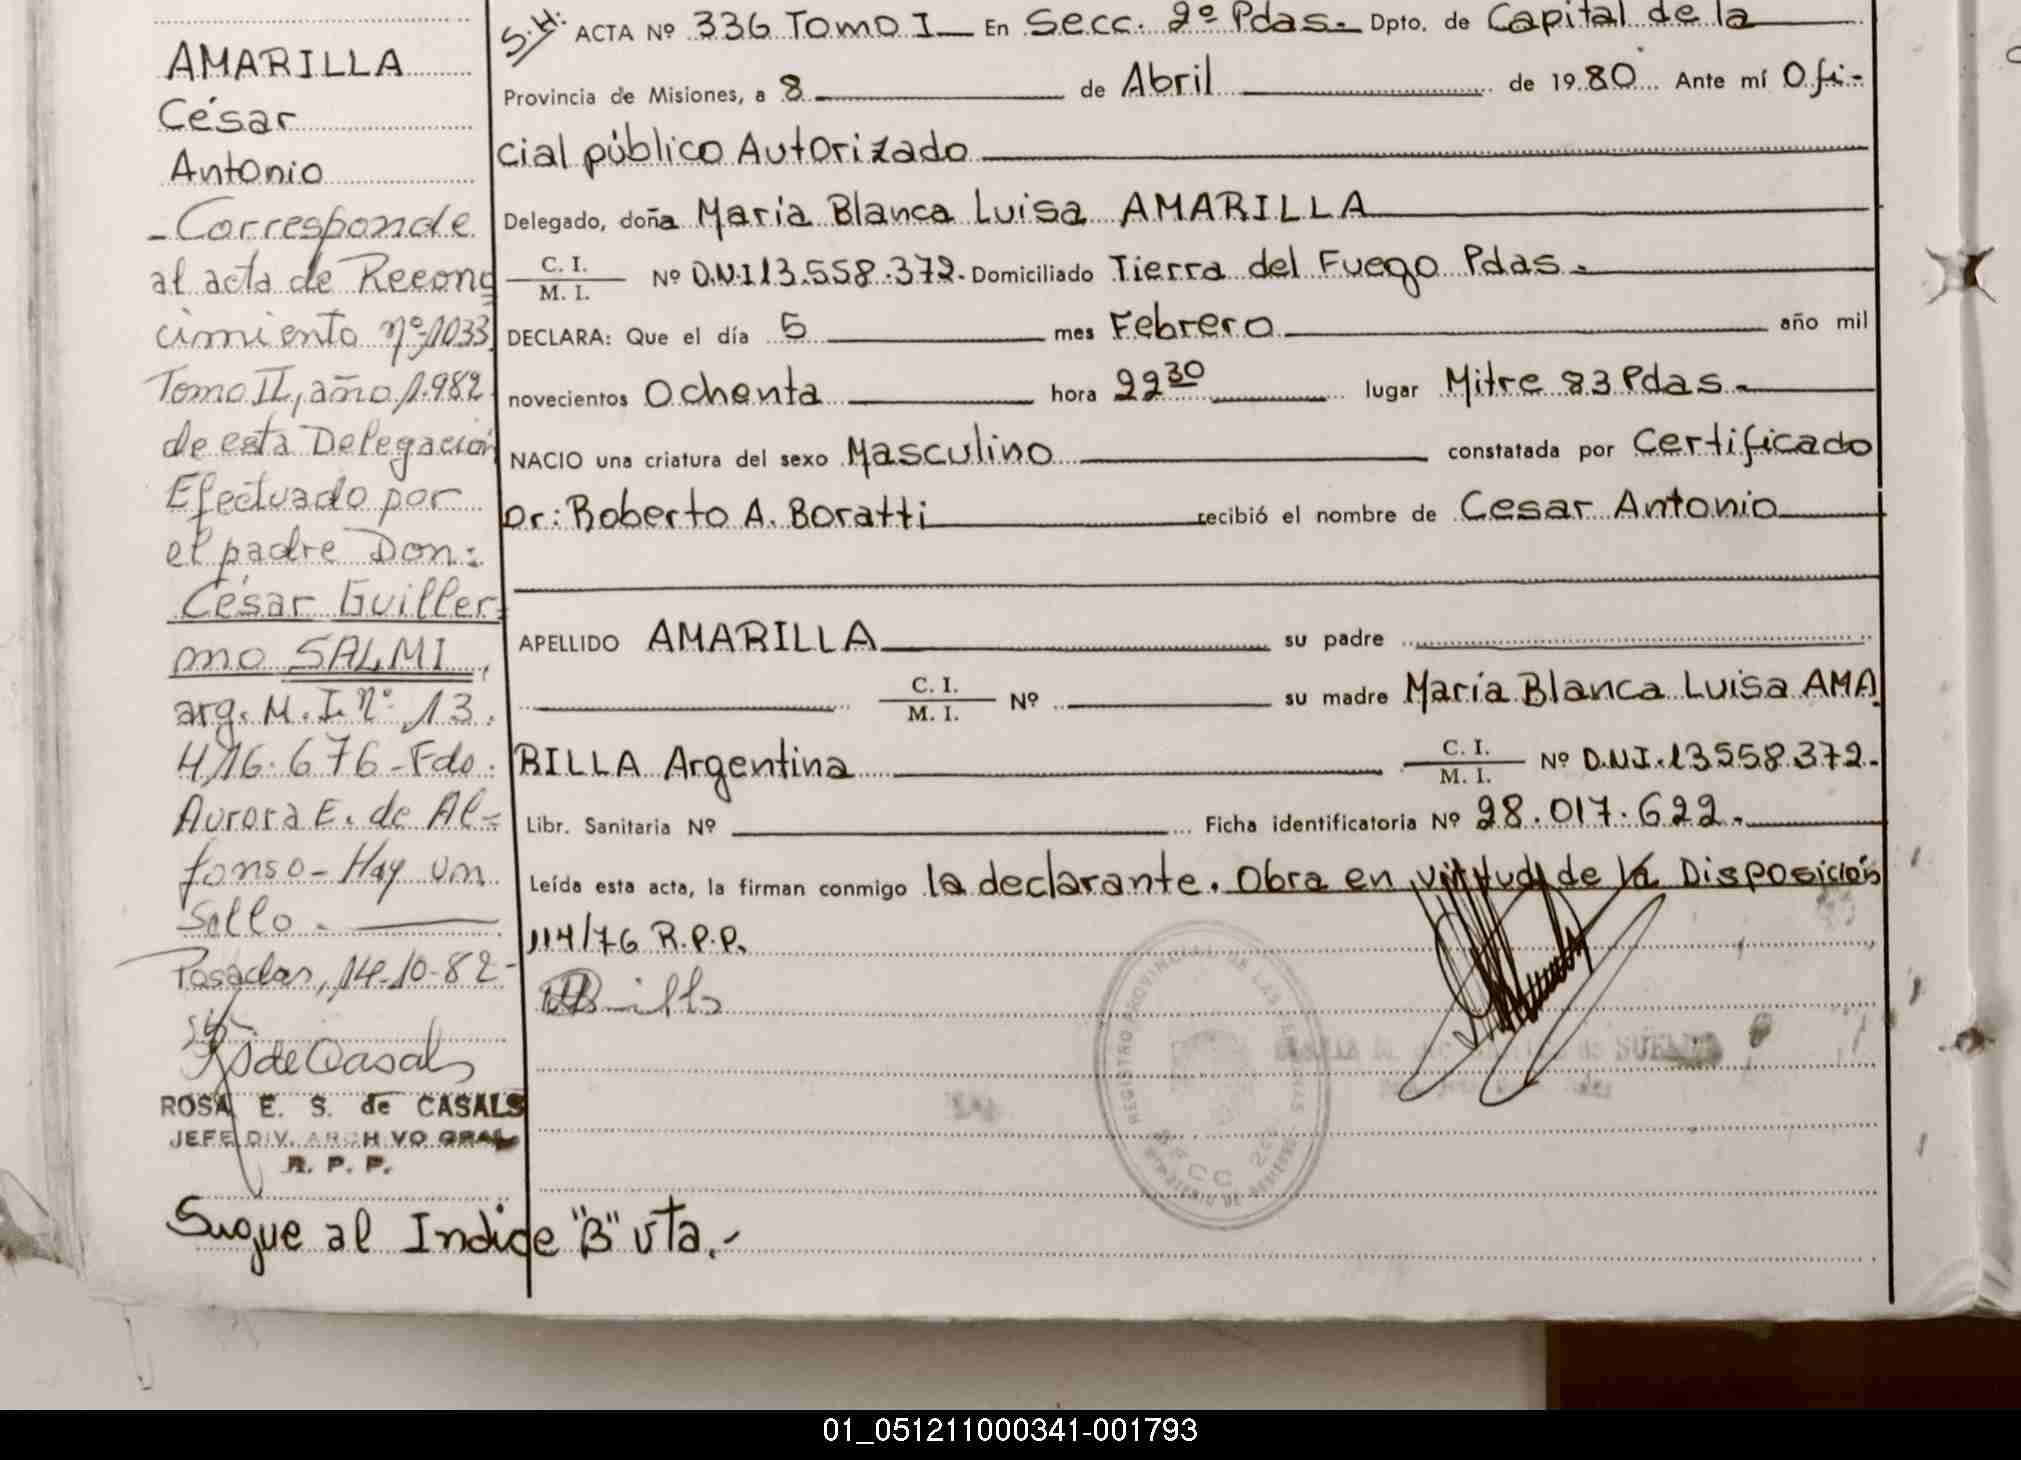 AMARILLA
César
Antonio
- Corresponde
al acta de Recono
cimiento nº 1033
Tomo II, año 1.982
de esta Delegación
Efectuado por
el padre Don:
César Guiller=
mo SALMI,
arg. M. I. Nº 13.
416.676 - Fdo.
Aurora E. de Al=
fonso - Hay un
Sello.
Posadas, 14-10-82-
ROSA E. S. de CASALS
JEFE DIV. ARCHIVO GRAL
R. P. P.
Sugue al Indice "B" vta.-
S.H: ACTA Nº 336 Tomo I En Secc. 2º Pdas. Dpto. de Capital de la
Provincia de Misiones, a 8 de Abril de 1980 Ante mí Ofi-
cial público Autorizado
Delegado, doña María Blanca Luisa AMARILLA
C. I. / M. I. Nº D.N.I 13.558.372. Domiciliado Tierra del Fuego Pdas.
DECLARA: Que el día 5 mes Febrero año mil
novecientos Ochenta hora 22 30 lugar Mitre 83 Pdas.
NACIO una criatura del sexo Masculino constatada por Certificado
Dr: Roberto A. Boratti recibió el nombre de Cesar Antonio
APELLIDO AMARILLA su padre
C. I. / M. I. Nº su madre María Blanca Luisa AMA
RILLA Argentina C. I. / M. I. Nº D.N.I. 13558.372.
Libr. Sanitaria Nº Ficha identificatoria Nº 28.017.622.
Leída esta acta, la firman conmigo la declarante. Obra en virtud de la Disposición
114/76 R.P.P.
REGISTRO PROVINCIAL DE LAS PERSONAS
SECC 2da
01_051211000341-001793